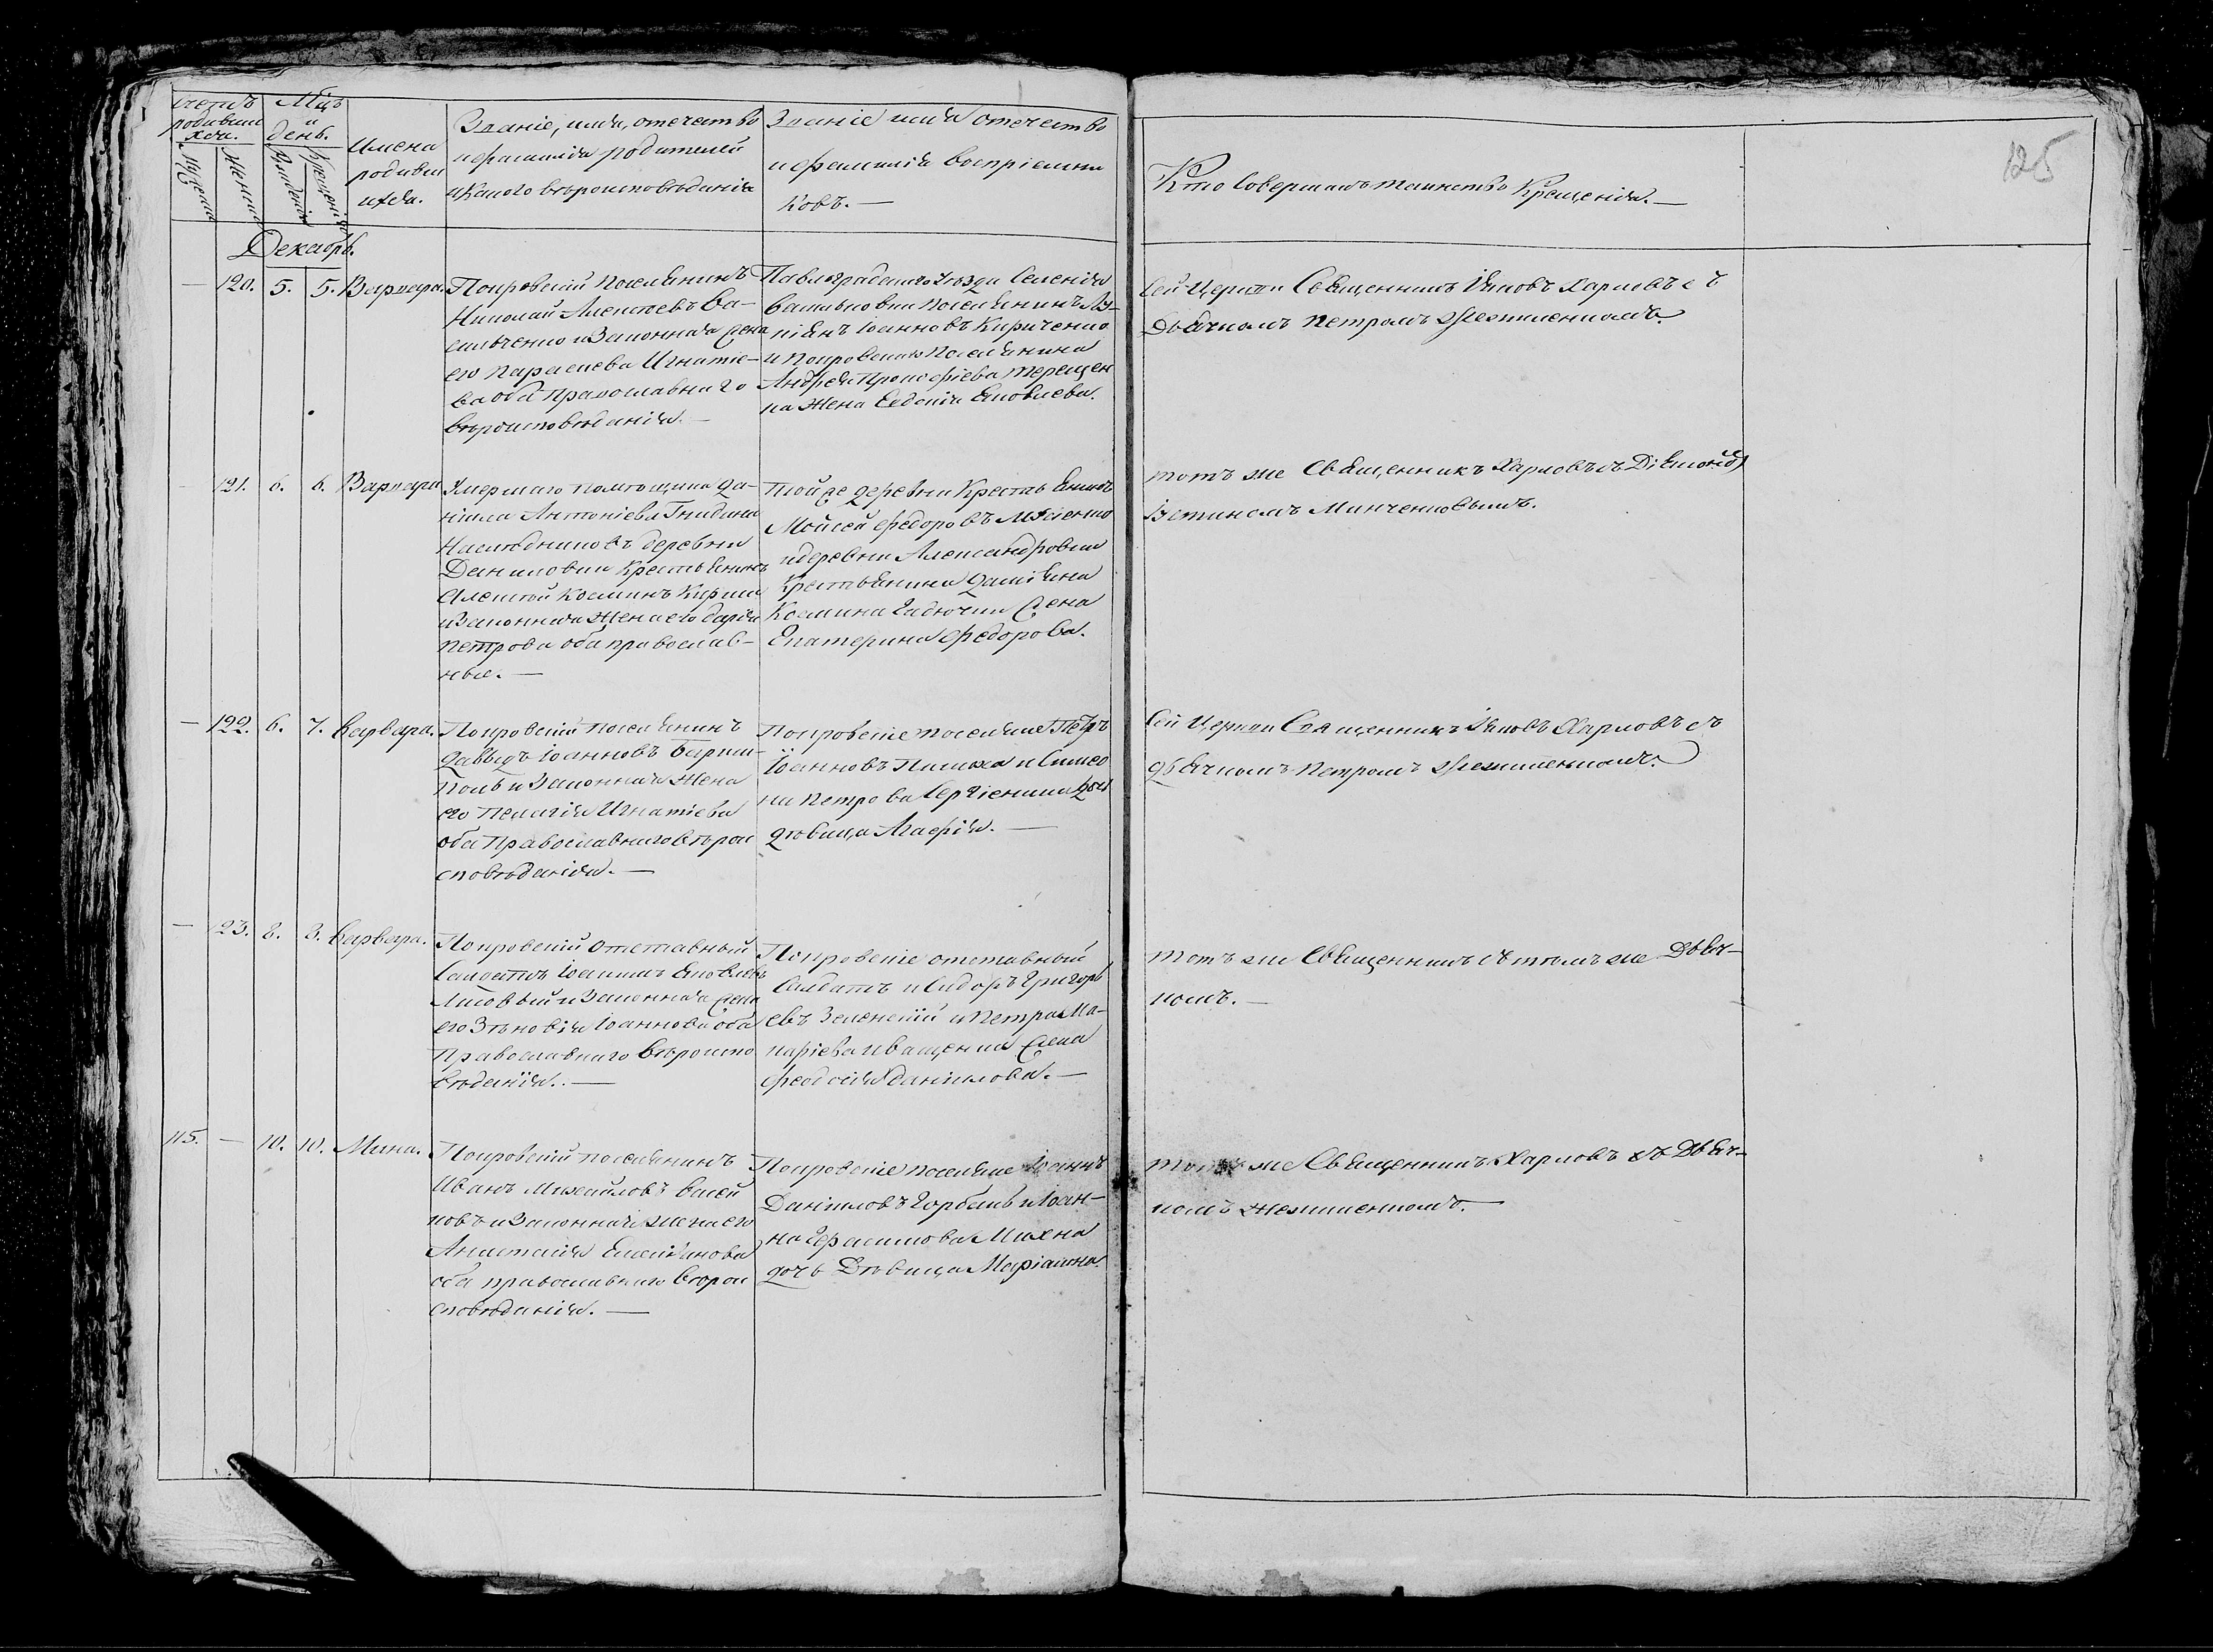 Счетъ родивши хся.
Мужеска
Женска
Мцъ и день.
Рожденія
Крещенія
Имена
родивши
ихся.
Званіе, имя, отечество
и фамилія родителей
и какого вѣроисповѣданія
Званіе имя отечество
и фамилія воспріемни
ковъ. —
Кто совершалъ таинство Крещенія. —
125
Декабрь.
— 120. 5. 5. Варвара.
Покровскій поселянинъ
Николай Алексѣевъ Ва-
сильченко и Законная жена
его Параскева Игнатіе-
ва оба Православнаго
вѣроисповѣданія. —
Павлоградскаго уѣзда Селенія
Васильковки поселянинъ Лу-
кіянъ Іоанновъ Кириченко
и покровскаго поселянина
Андрея Прокофіева Терещен
ка Жена Евдокія Яковлева.
Сей Церкви Священникъ Іяковъ Харловъ съ
Дьячкомъ Петромъ
— 121. 6. 6. Варвара
Умершаго помѣщика Да-
ніила Антоніева Гнидина
Наслѣдниковъ деревни
Даниловки Крестьянинъ
Алексѣй Косминъ
и Законная Жена его Дарія
Петрова оба православ-
ные. —
Той же деревни Крестьянинъ
Мойсей Федоровъ
и деревни Александровки
Крестьянина Даміяна
Космина Жена
Екатерина Федорова.
тотъ же Священникъ Харловъ съ Діякономъ
Іустиномъ Минченковымъ.
— 122. 6. 7. Варвара.
Покровскій поселянинъ
Давыдъ Іоанновъ
и Законная Жена
его Пелагія Игнатіева
оба Православнаго вѣрои
сповѣданія. —
Покровскіе поселяне Петръ
Іоанновъ и Симео
на Петрова дочь
дѣвица Агафія. —
Сей Церкви Священникъ Іяковъ Харловъ съ
дьячкомъ Петромъ
— 23. 8. 8. Варвара.
Покровскій отставный
Солдатъ Іоакимъ Яковлевъ
и Законная жена
его Зѣновія Іоаннова оба
Православнаго вѣроиспо
вѣданія. —
Покровскіе отставный
Солдатъ Исидоръ Григорь
евъ Зеленскій и Петра Ма-
каріева Иващенка жена
Феодосія Даніилова. —
тотъ же Священникъ съ тѣмъ же Дьяч-
комъ. —
115. — 10. 10. Мина.
Покровскій поселянинъ
Иванъ Михайловъ
и Законная жена его
Анастасія Емеліянова
оба православнаго вѣрои
сповѣданія. —
Покровскіе поселяне Іоаннъ
Даніиловъ Горбань и Іоан-
на Герасимова Михна
дочь Дѣвица Маріамна.
тотъ же Священникъ Харловъ съ Дьяч-
комъ